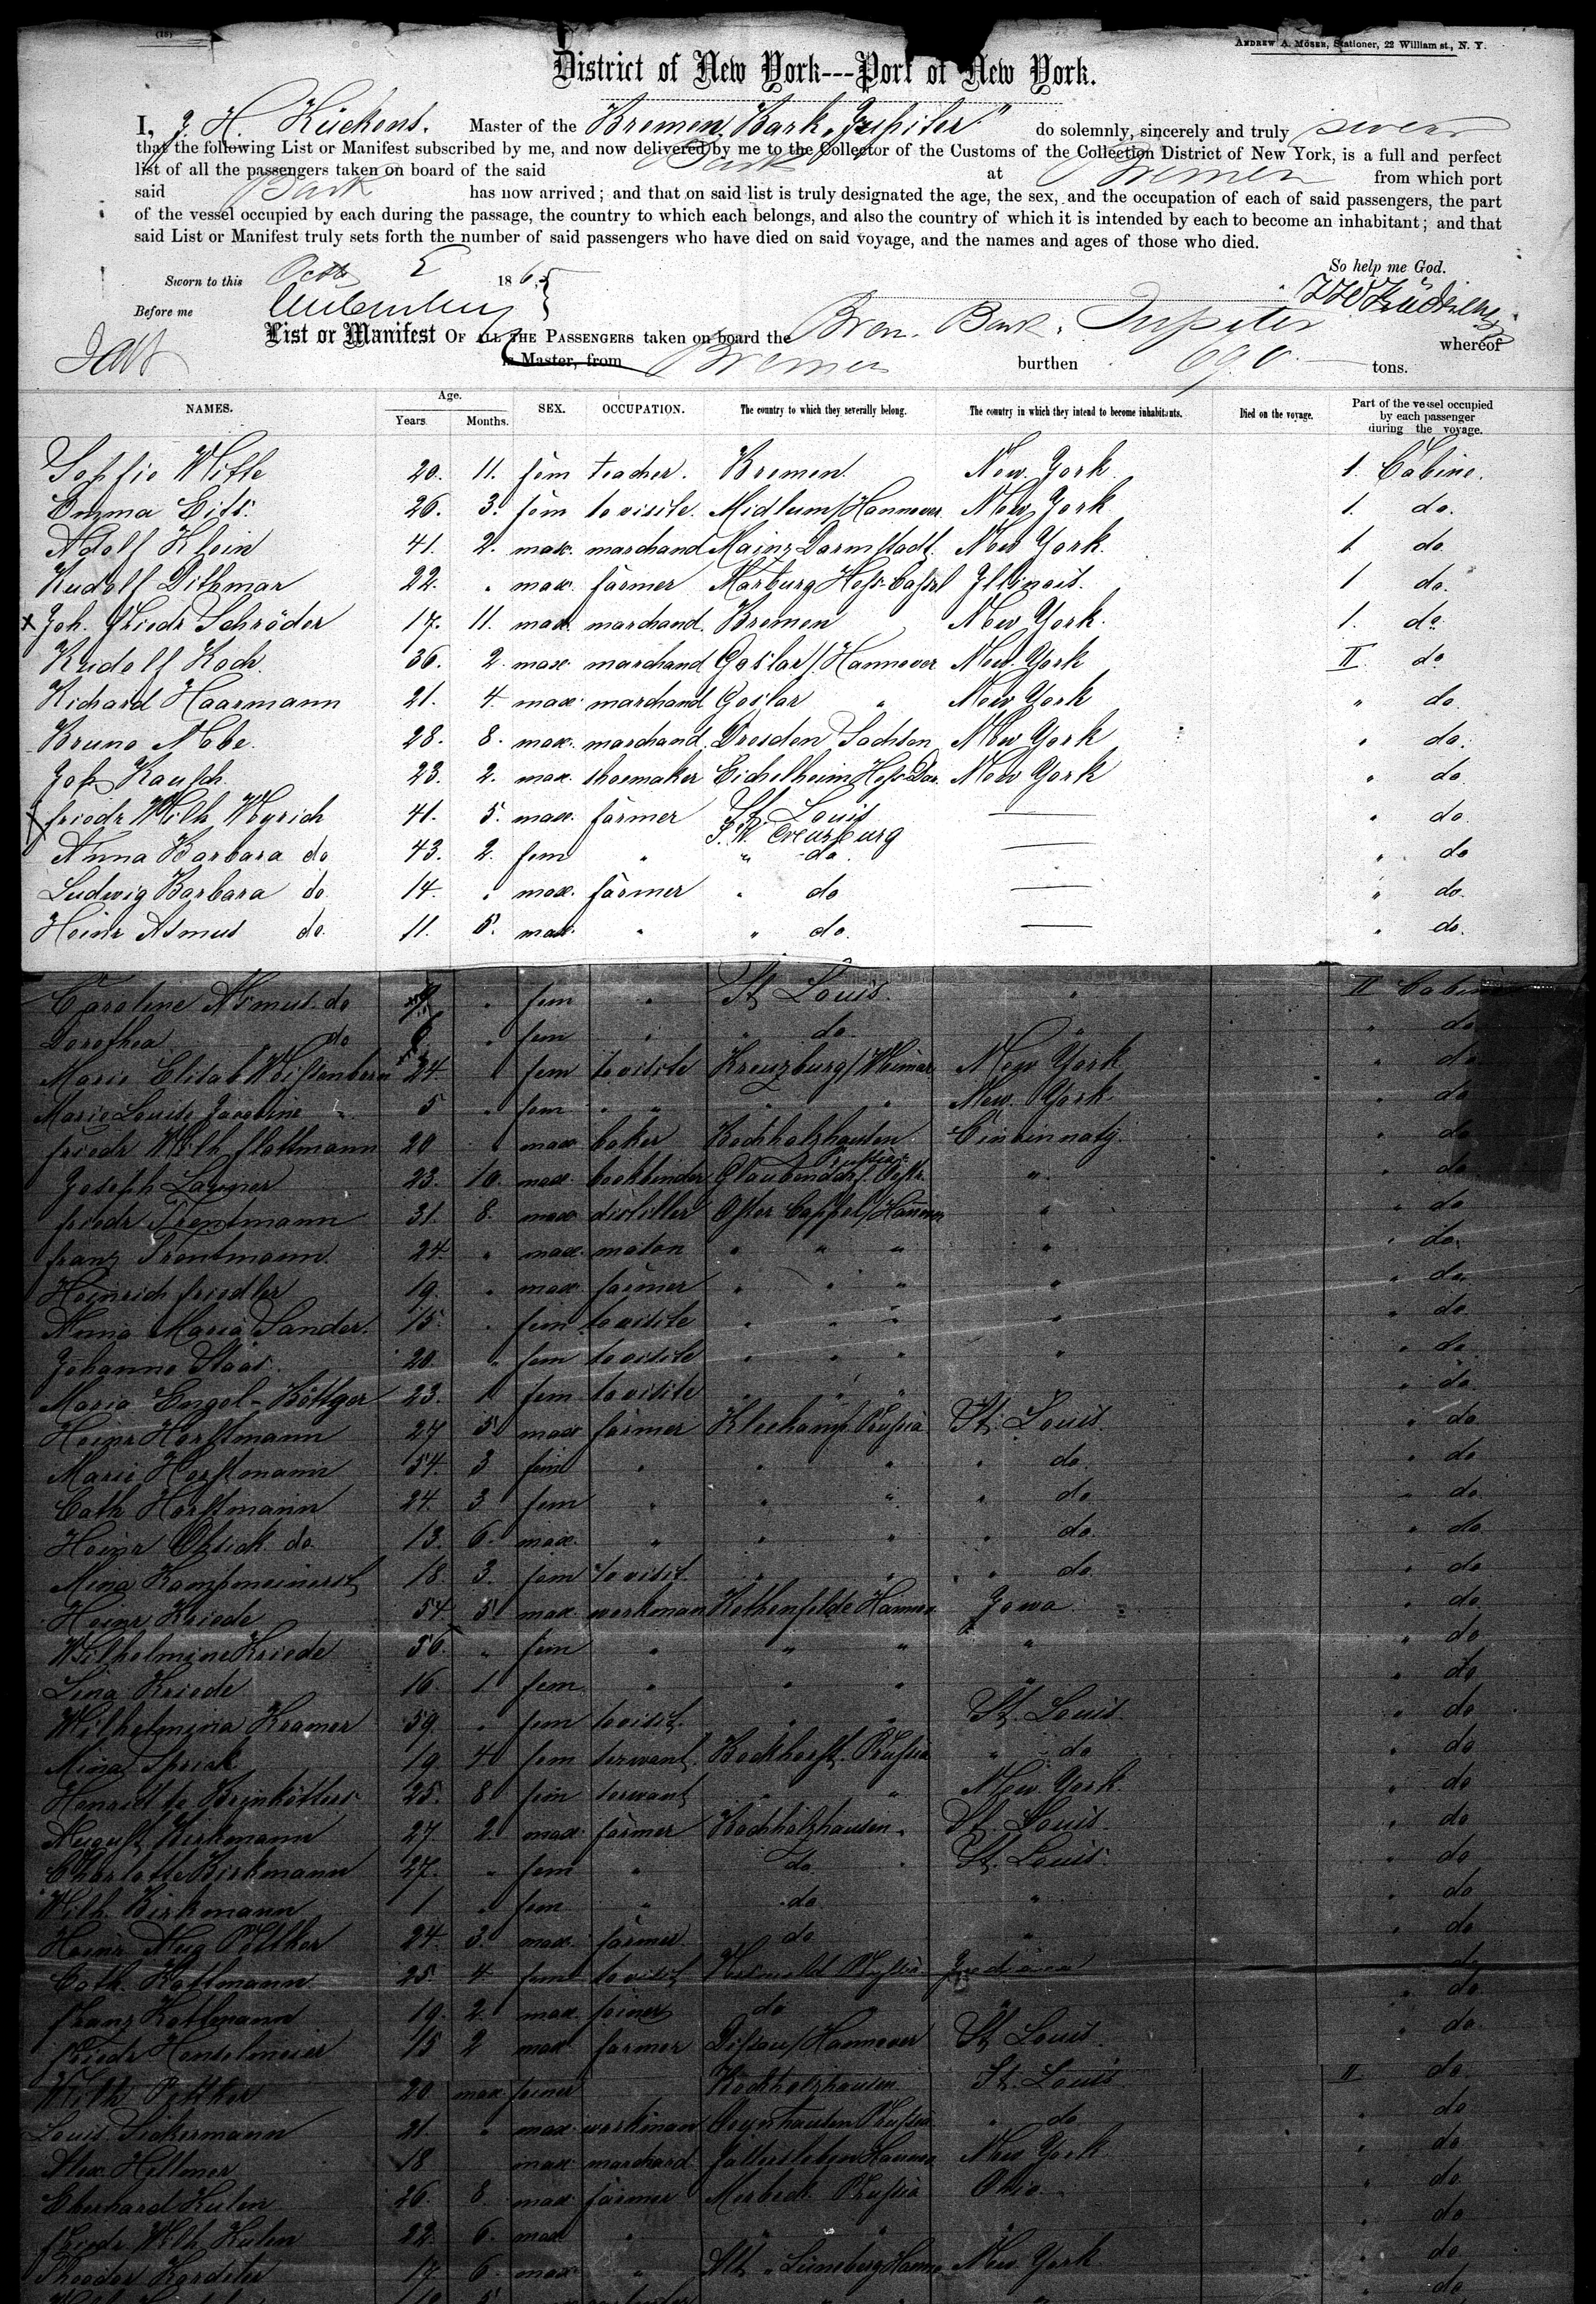 (18)
ANDREW A. MOSER, Stationer, 22 William st., N. Y.
District of New York---Port of New York.
I, J. H. Kückens. Master of the Bremen Bark "Jupiter" do solemnly, sincerely and truly swear
that the following List or Manifest subscribed by me, and now delivered by me to the Collector of the Customs of the Collection District of New York, is a full and perfect
list of all the passengers taken on board of the said Bark at Bremen from which port
said Bark has now arrived; and that on said list is truly designated the age, the sex, and the occupation of each of said passengers, the part
of the vessel occupied by each during the passage, the country to which each belongs, and also the country of which it is intended by each to become an inhabitant; and that
said List or Manifest truly sets forth the number of said passengers who have died on said voyage, and the names and ages of those who died.
So help me God.
Sworn to this Octb 5 1865
Before me
List or Manifest OF ALL THE PASSENGERS taken on board the Brem. Bark Jupiter whereof
is Master, from Bremen burthen 690 tons.
NAMES. Age. Years. Months. SEX. OCCUPATION. The country to which they severally belong. The country in which they intend to become inhabitants. Died on the voyage. Part of the vessel occupied by each passenger during the voyage.
Sophie Witte 20. 11. fem teacher. Bremen. New York 1. Cabine.
Emma Eits. 26. 3. fem to visite. Midlum/Hannover New York 1. do.
Adolf Klein 41. 2. masc. marchand Mainz Darmstadt. New York. 1 do
Rudolf Dithmar 22. " masc. farmer Marburg Hess-Cassel Illinois. 1 do.
x Joh. Friedr Schröder 17. 11. masc. marchand. Bremen New York. 1. do.
Rudolf Koch. 36. 2. masc. marchand Goslar/Hannover New York II do
Richard Haarmann 21. 4. masc. marchand Goslar " New York " do.
Bruno Nobe. 28. 8. masc. marchand. Dresden Sachsen New York " do.
Joh Kausch. 23. 2. masc. shoemaker Eichelheim Hess-Dar. New York " do.
x Friedr Wilh Weyrich 41. 5. masc. farmer St. Louis — " do.
Creuzburg
Anna Barbara do 43. 2. fem " " do. — " do
Ludwig Barbara do. 14. " masc. farmer " do — " do.
Heinr Asmus do. 11. 5. masc. " " do. — " do.
Caroline Asmus. do 9 " fem " St. Louis. " II Cabine
Dorothea do 6 " fem " " do " " do
Marie Elisab 24. " fem to visite Kreuzburg/Weimar New York " do
Marie Louise " 5 " fem " " " " New York " do
Friedr Wilh Flottmann 20 " masc baker Bockholzhausen. Cincinnaty. " do
Prussia.
Joseph 23. 10. masc. bookbinder " " do
Friedr Trentmann 31. 8. masc distiller Oster Cappel/Hannov " " do
Franz Trentmann. 24. " masc. " " " " " do.
Heinrich Friedler 19. " masc. farmer " " " " " do.
Anna Maria Sander. 15. " fem to visite " " " " " do.
Johanne Staas. 20. " fem to visite " " " " " do.
Maria Engel-Böttger 23. 1 fem to visite " " " " do.
Heinr Horstmann 27 5. masc farmer Kleekamp Prussia St. Louis. " do
Marie Horstmann 54. 3 fem " " " " do. " do
Cath Horstmann 24. 3 fem " " " " do. " do.
Heinr do 13. 6. masc. " " " " do. " do
Mina 18. 3. fem to visit. " " " do. " do
Heinr Kriede 54 5. masc. workman Rothenfelde Hannov Iowa. " do.
Wilhelmine Kriede 56. " fem " " " " " do
Lina Kriede. 16. 1 fem. " " " " " do
Wilhelmina Kramer 59. " fem to visit. " " St. Louis. " do
Mina Sprick 19 4 fem servant. Bockhorst. Prussia " do " do
Henriette 25. 8 fem servant " " New York. " do
August Birkmann 27 2. masc. farmer Bockholzhausen. St. Louis. " do
Charlotte Birkmann 27. " fem " do. St. Louis. " do
Wilh. Birkmann 1 " fem " do " " do
Heinr Aug Pottker 24. 3. masc. farmer. do " " do
Cath. Kottmann 25. 4 fem to visit Prussia Indiana do
Franz Kottmann 19. 2. masc. joiner do " " do.
Friedr Henselmeier 15 2 masc farmer Dissen/Hannover St. Louis. " do.
Wilh Pottker 20. masc joiner Bockholzhausen St. Louis II do.
Louis Sickermann 21. " masc workman Oeynhausen Prussia " do " do
Alex. Hellmer 18 masc marchand. Fallersleben Hannov New York. " do
Eberhard Kulen 26. 8. masc farmer Merbeck Prussia Ohio. " do.
Friedr Wilh Kulen 22. 6. masc " " " " " do
Theodor 17. 6. masc " " Lüneburg Hannov New York. " do.